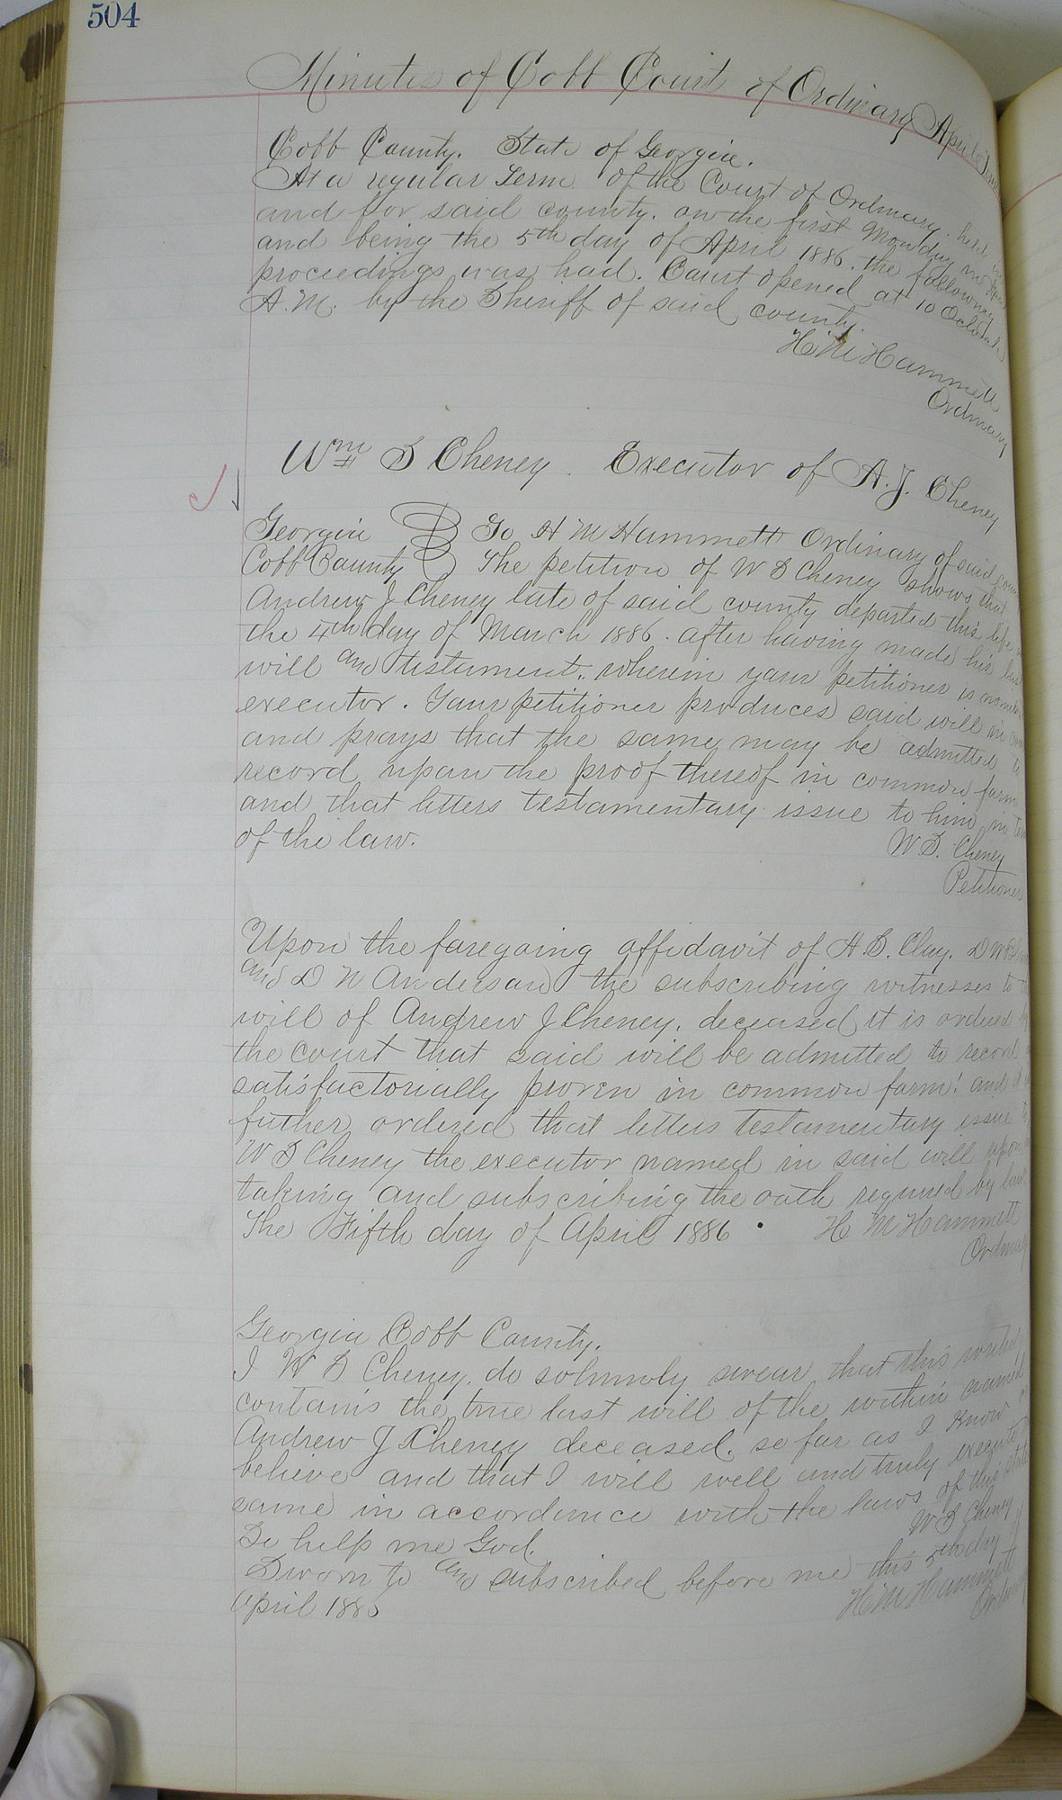 504
Minutes of Cobb Court of Ordinary April Term
Cobb County. State of Georgia.
At a regular Term of the Court of Ordinary. held in
and for said county. on the first Monday in
and being the 5th day of April 1886. the following
proceedings was had. Court opened at 10 Oclock
A.M. by the Sheriff of said county.
H M Hammett
Ordinary
Wm S Cheney. Executor of A. J. Cheney
Georgia To H M Hammett Ordinary of said
Cobb County The petition of W S Cheney shows that
Andrew J Cheney late of said county departed this life
the 4th day of March 1886. after having made his last
will and testament. wherein your petitioner is
executor. Your petitioner produces said will in
and prays that the same may be admitted to
record upon the proof thereof in common form
and that letters testamentary issue to him in
of the law.
W S. Cheney
Petitioner
Upon the foregoing affidavit of H. S. Clay.
and D N Anderson the subscribing witnesses to
will of Andrew J Cheney. deceased it is ordered
the court that said will be admitted to record
satisfactorially proven in common form! and
futher ordered that letters testamentary issue
W S Cheney the executor named in said will upon
taking and subscribing the oath required by law.
The Fifth day of April 1886 . H M Hammett
Ordinary
Georgia Cobb County.
I W S Cheney. do solmnly swear that this
contains the true last will of the within named
Andrew J Cheney deceased. so far as I know
believe and that I will well and truly execute
same in accordance with the laws of this State
So help me God. W S Cheney
Sworn to and subscribed before me this 5th day
April 1886 H M Hammett